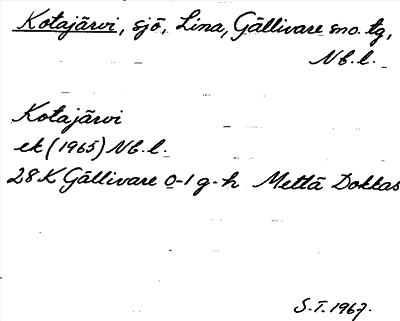 Kotajärvi, sjö, Lina, Gällivare sno. tg,
Nb. l.
Kotajärvi
ek (1965) Nb. l.
28K Gällivare 0-1 g-h Mettä Dokkas
S.T. 1967.